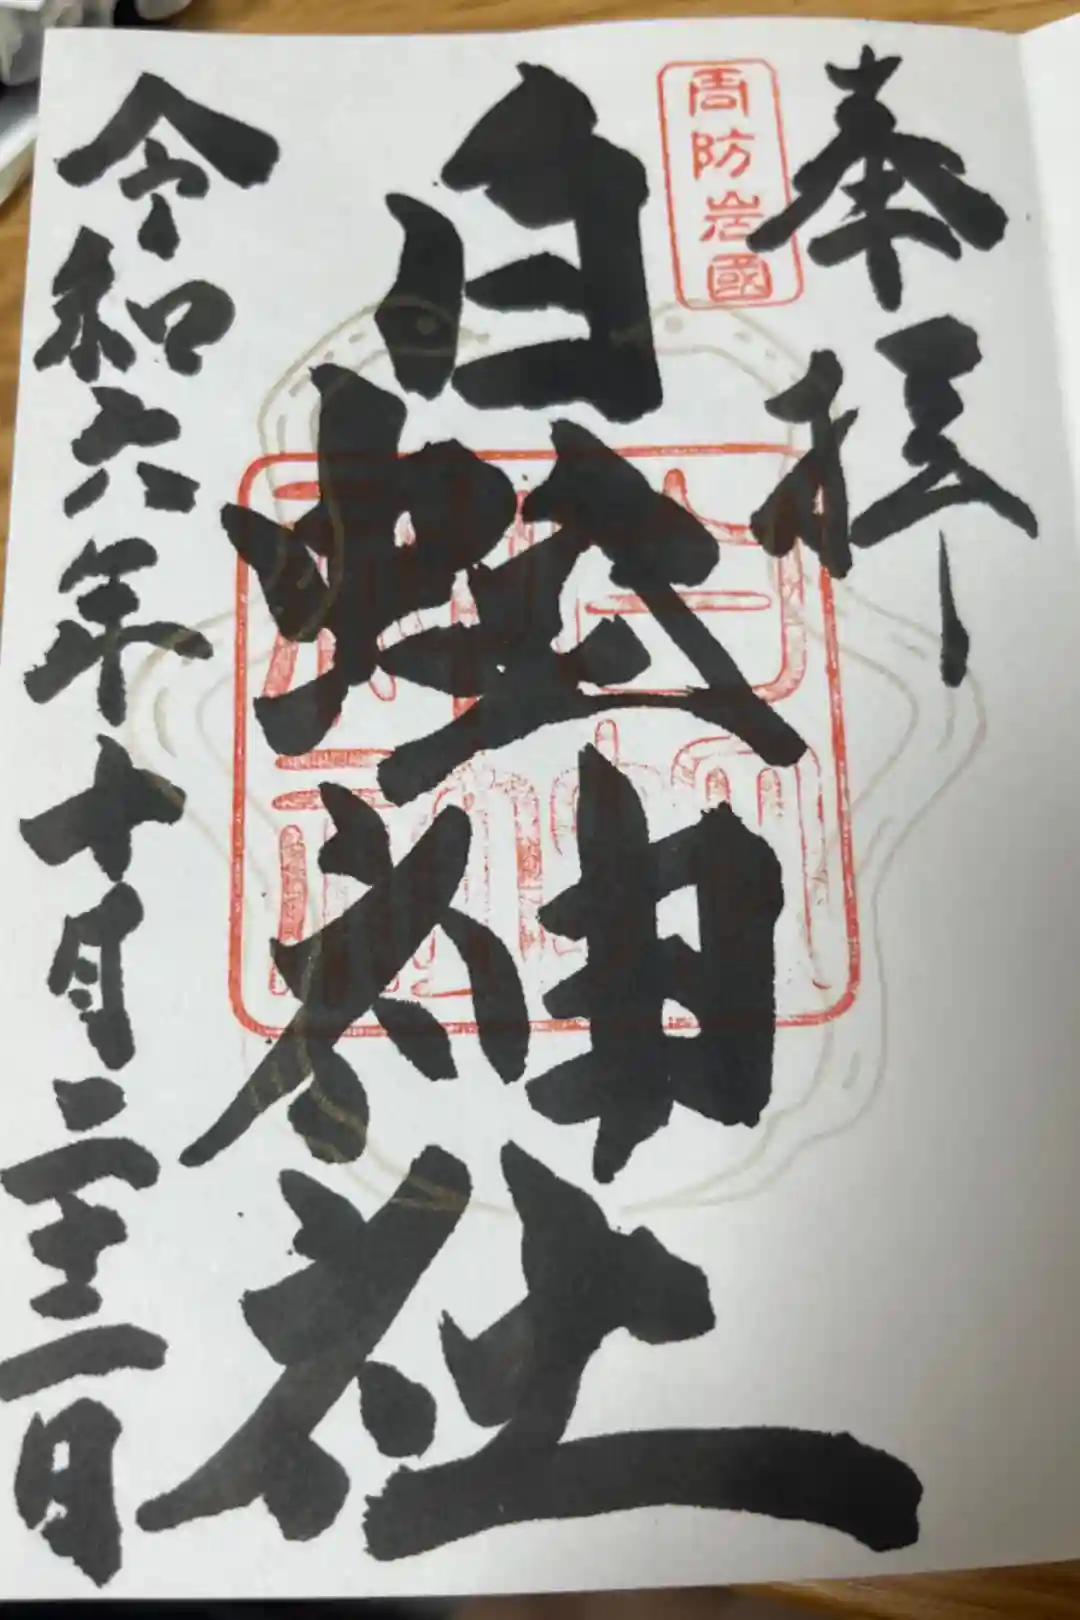 奉拝
周防岩國
白蛇神社
令和六年十月二十三日